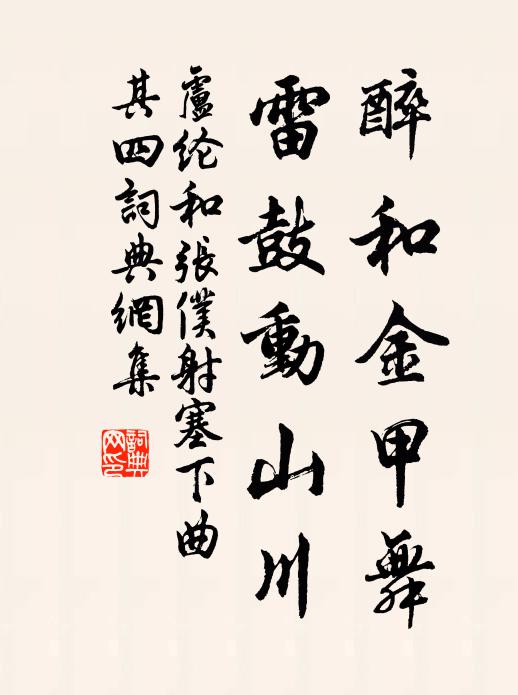 醉和金甲舞
雷鼓動山川
盧纶和張僕射塞下曲
其四詞典網集
詞典网印